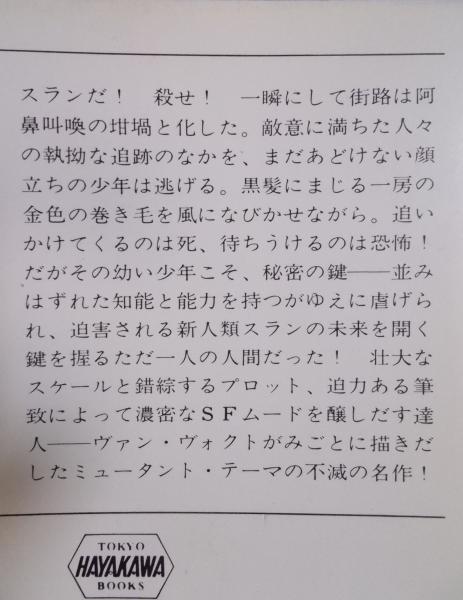 スランだ！　殺せ！　一瞬にして街路は阿
鼻叫喚の坩堝と化した。敵意に満ちた人々
の執拗な追跡のなかを、まだあどけない顔
立ちの少年は逃げる。黒髪にまじる一房の
金色の巻き毛を風になびかせながら。追い
かけてくるのは死、待ちうけるのは恐怖！
だがその幼い少年こそ、秘密の鍵――並み
はずれた知能と能力を持つがゆえに虐げら
れ、迫害される新人類スランの未来を開く
鍵を握るただ一人の人間だった！　壮大な
スケールと錯綜するプロット、迫力ある筆
致によって濃密なＳＦムードを醸しだす達
人――ヴァン・ヴォクトがみごとに描きだ
したミュータント・テーマの不滅の名作！
TOKYO
HAYAKAWA
BOOKS